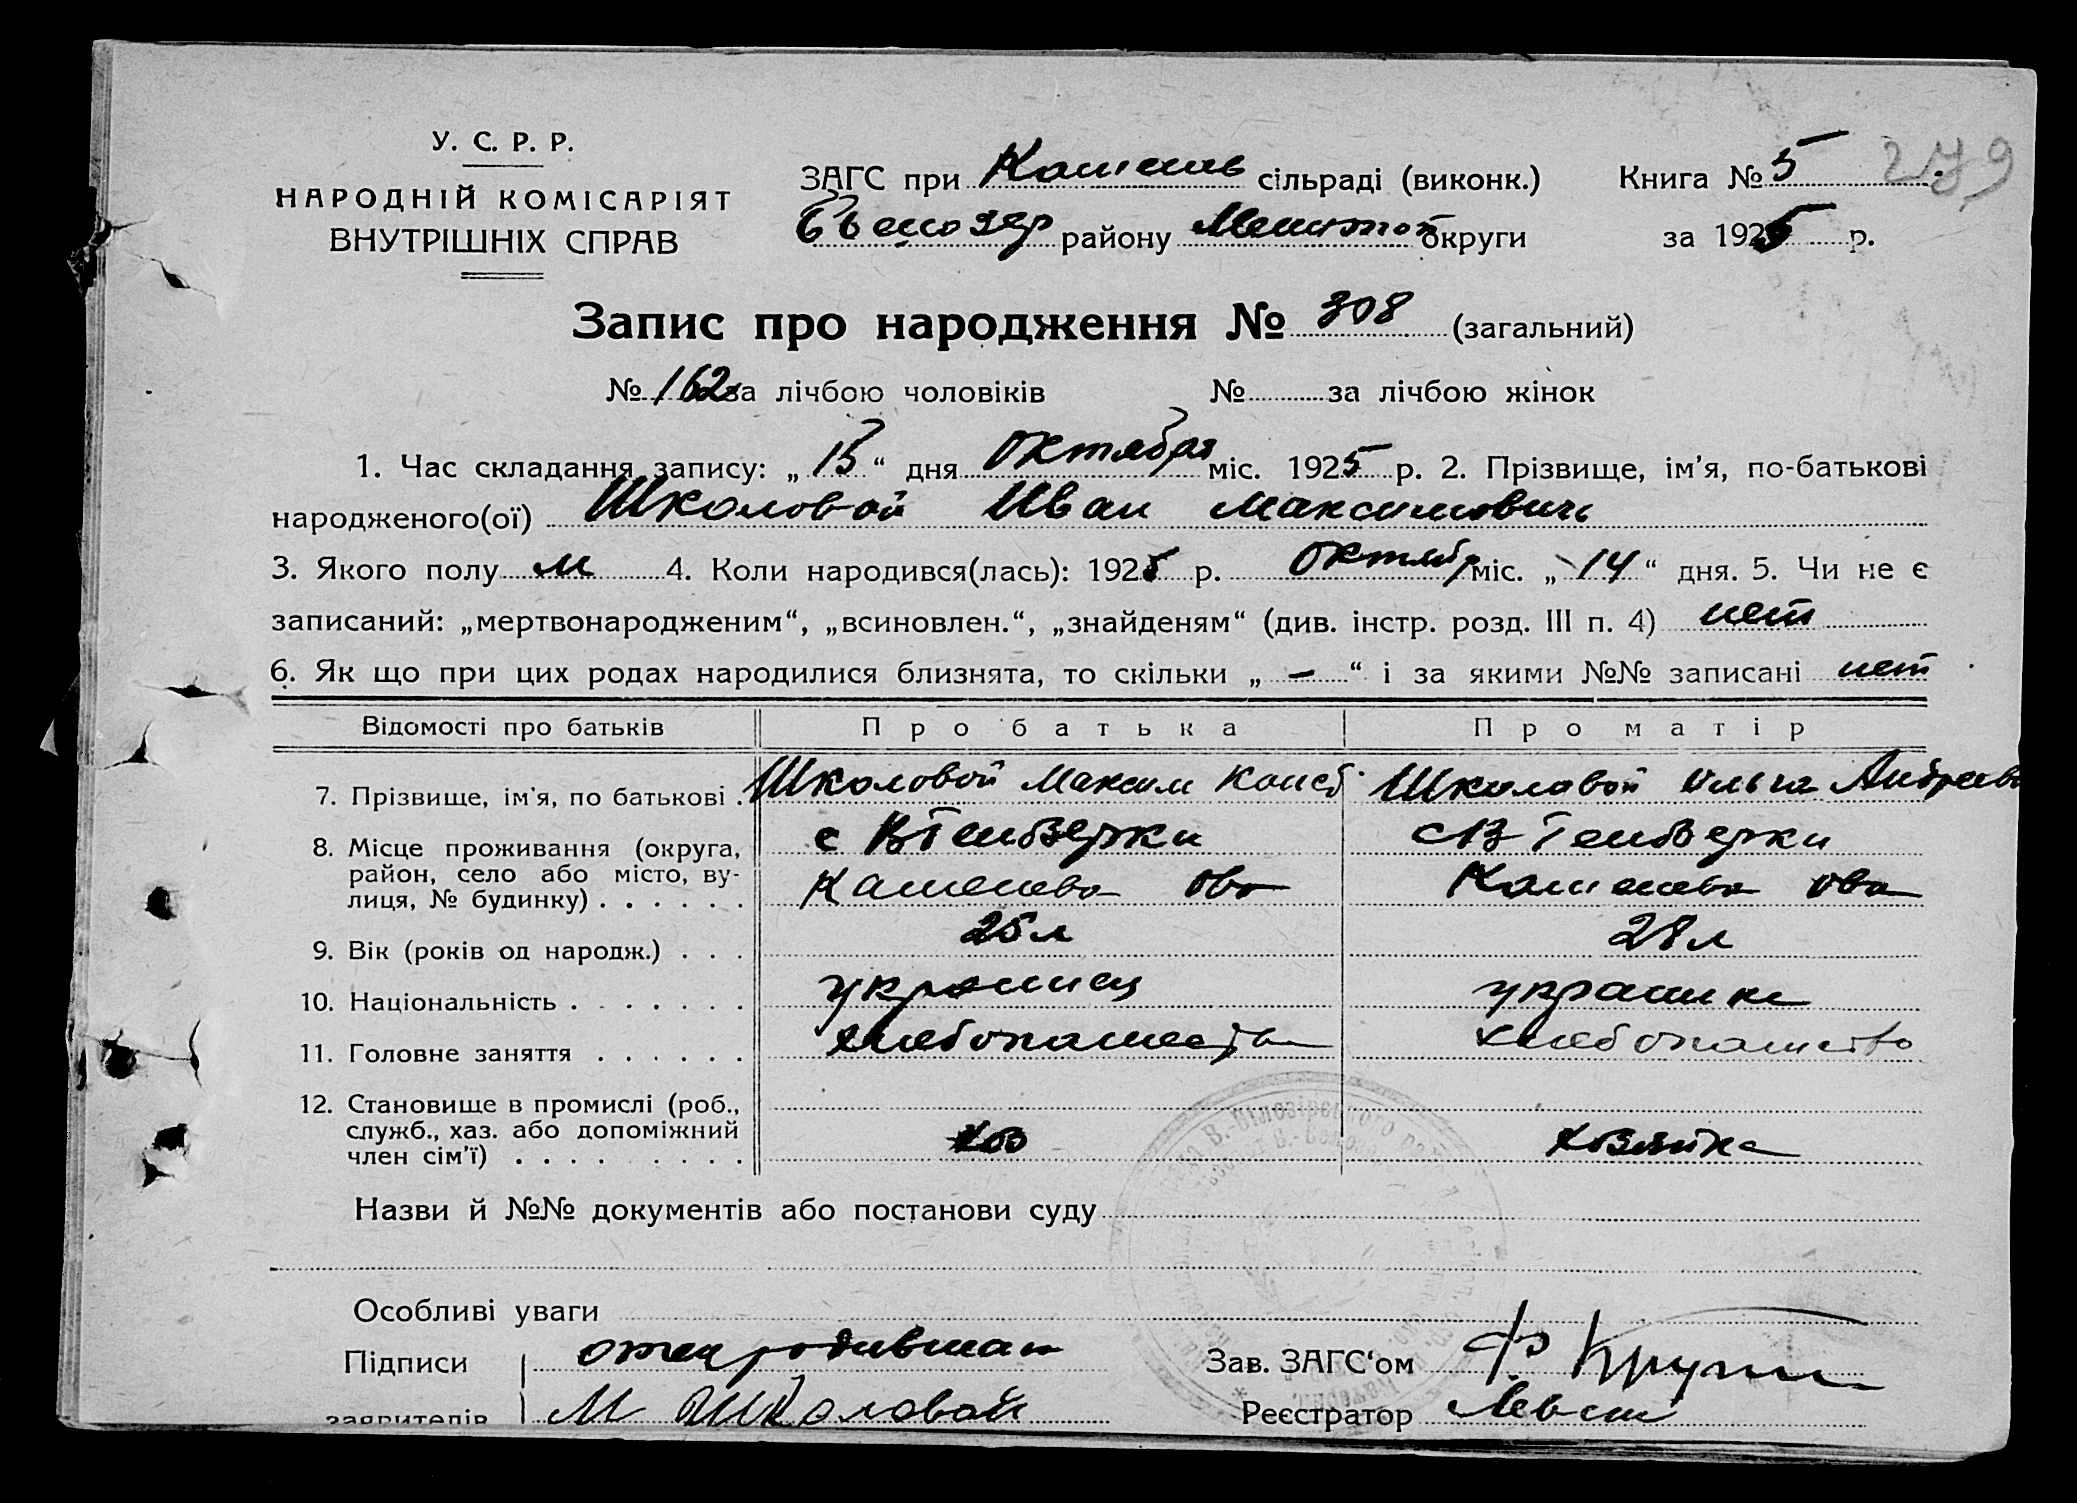 У. С. Р. Р.
НАРОДНІЙ КОМІСАРІЯТ
ВНУТРІШНІХ СПРАВ
ЗАГС при сільраді (виконк.) Книга № 5 279
району округи за 1925 р.
Запис про народження № 308 (загальний)
№ 162 за лічбою чоловіків № за лічбою жінок
1. Час складання запису: „15“ дня Октября міс. 1925 р. 2. Прізвище, ім'я, по-батькові
народженого(ої) Школовой Иван Максимович
3. Якого полу м 4. Коли народився(лась): 1925 р. Октябр міс. „14“ дня. 5. Чи не є
записаний: „мертвонародженим“, „всиновлен.“, „знайденям“ (див. інстр. розд. III п. 4) нет
6. Як що при цих родах народилися близнята, то скільки „—“ і за якими №№ записані нет
Відомості про батьків Про батька Про матір
7. Прізвище, ім'я, по батькові . Школовой Максим Конст Школавой Ольга Андреев
8. Місце проживання (округа, с с
район, село або місто, ву-
лиця, № будинку) . . . . . .
9. Вік (років од народж.) . . . 25 л 28 л
10. Національність . . . . . . . украинец украинк
11. Головне заняття . . . . . . хлебопашество хлебопашество
12. Становище в промислі (роб.,
служб., хаз. або допоміжний хоз хозяйка
член сім'ї) . . . . . . . . .
Назви й №№ документів або постанови суду
Особливі уваги
Підписи отец родивших Зав. ЗАГС'ом
заявителів М Школовой Реєстратор